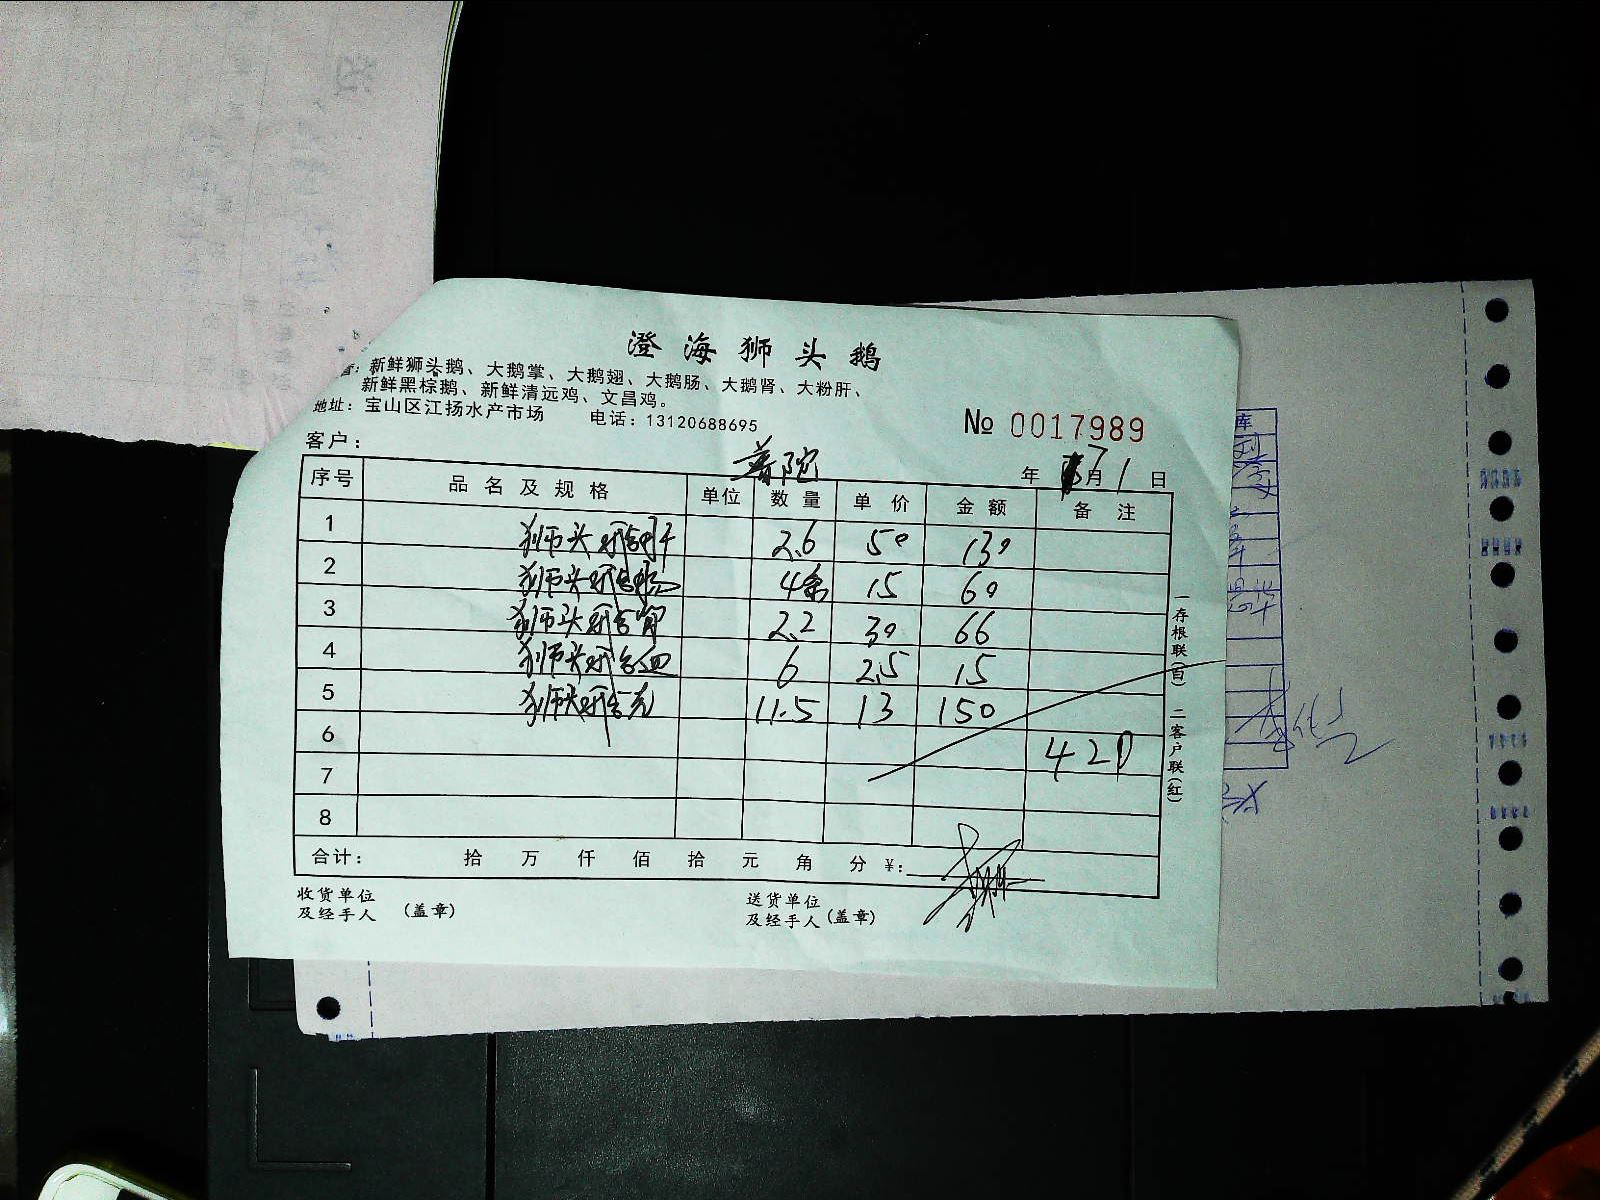 澄海狮头鹅
新鲜狮头鹅、大鹅掌、大鹅翅、大鹅肠、大鹅肾、大粉肝、
新鲜黑棕鹅、新鲜清远鸡、文昌鸡。
地址：宝山区江扬水产市场 电话：13120688695
№ 0017989
客户： 普陀 年 7月1日
序号 品名及规格 单位 数量 单价 金额 备注
1 狮头鹅肝 2.6 50 130
2 狮头鹅肠 4条 15 60
3 狮头鹅肾 2.2 30 66
4 狮头鹅血 6 2.5 15
5 狮头鹅壳 11.5 13 150
6 420
7
8
合计： 拾 万 仟 佰 拾 元 角 分 ¥：
收货单位
及经手人 （盖章）
送货单位
及经手人（盖章）
一存根联（白） 二客户联（红）
库